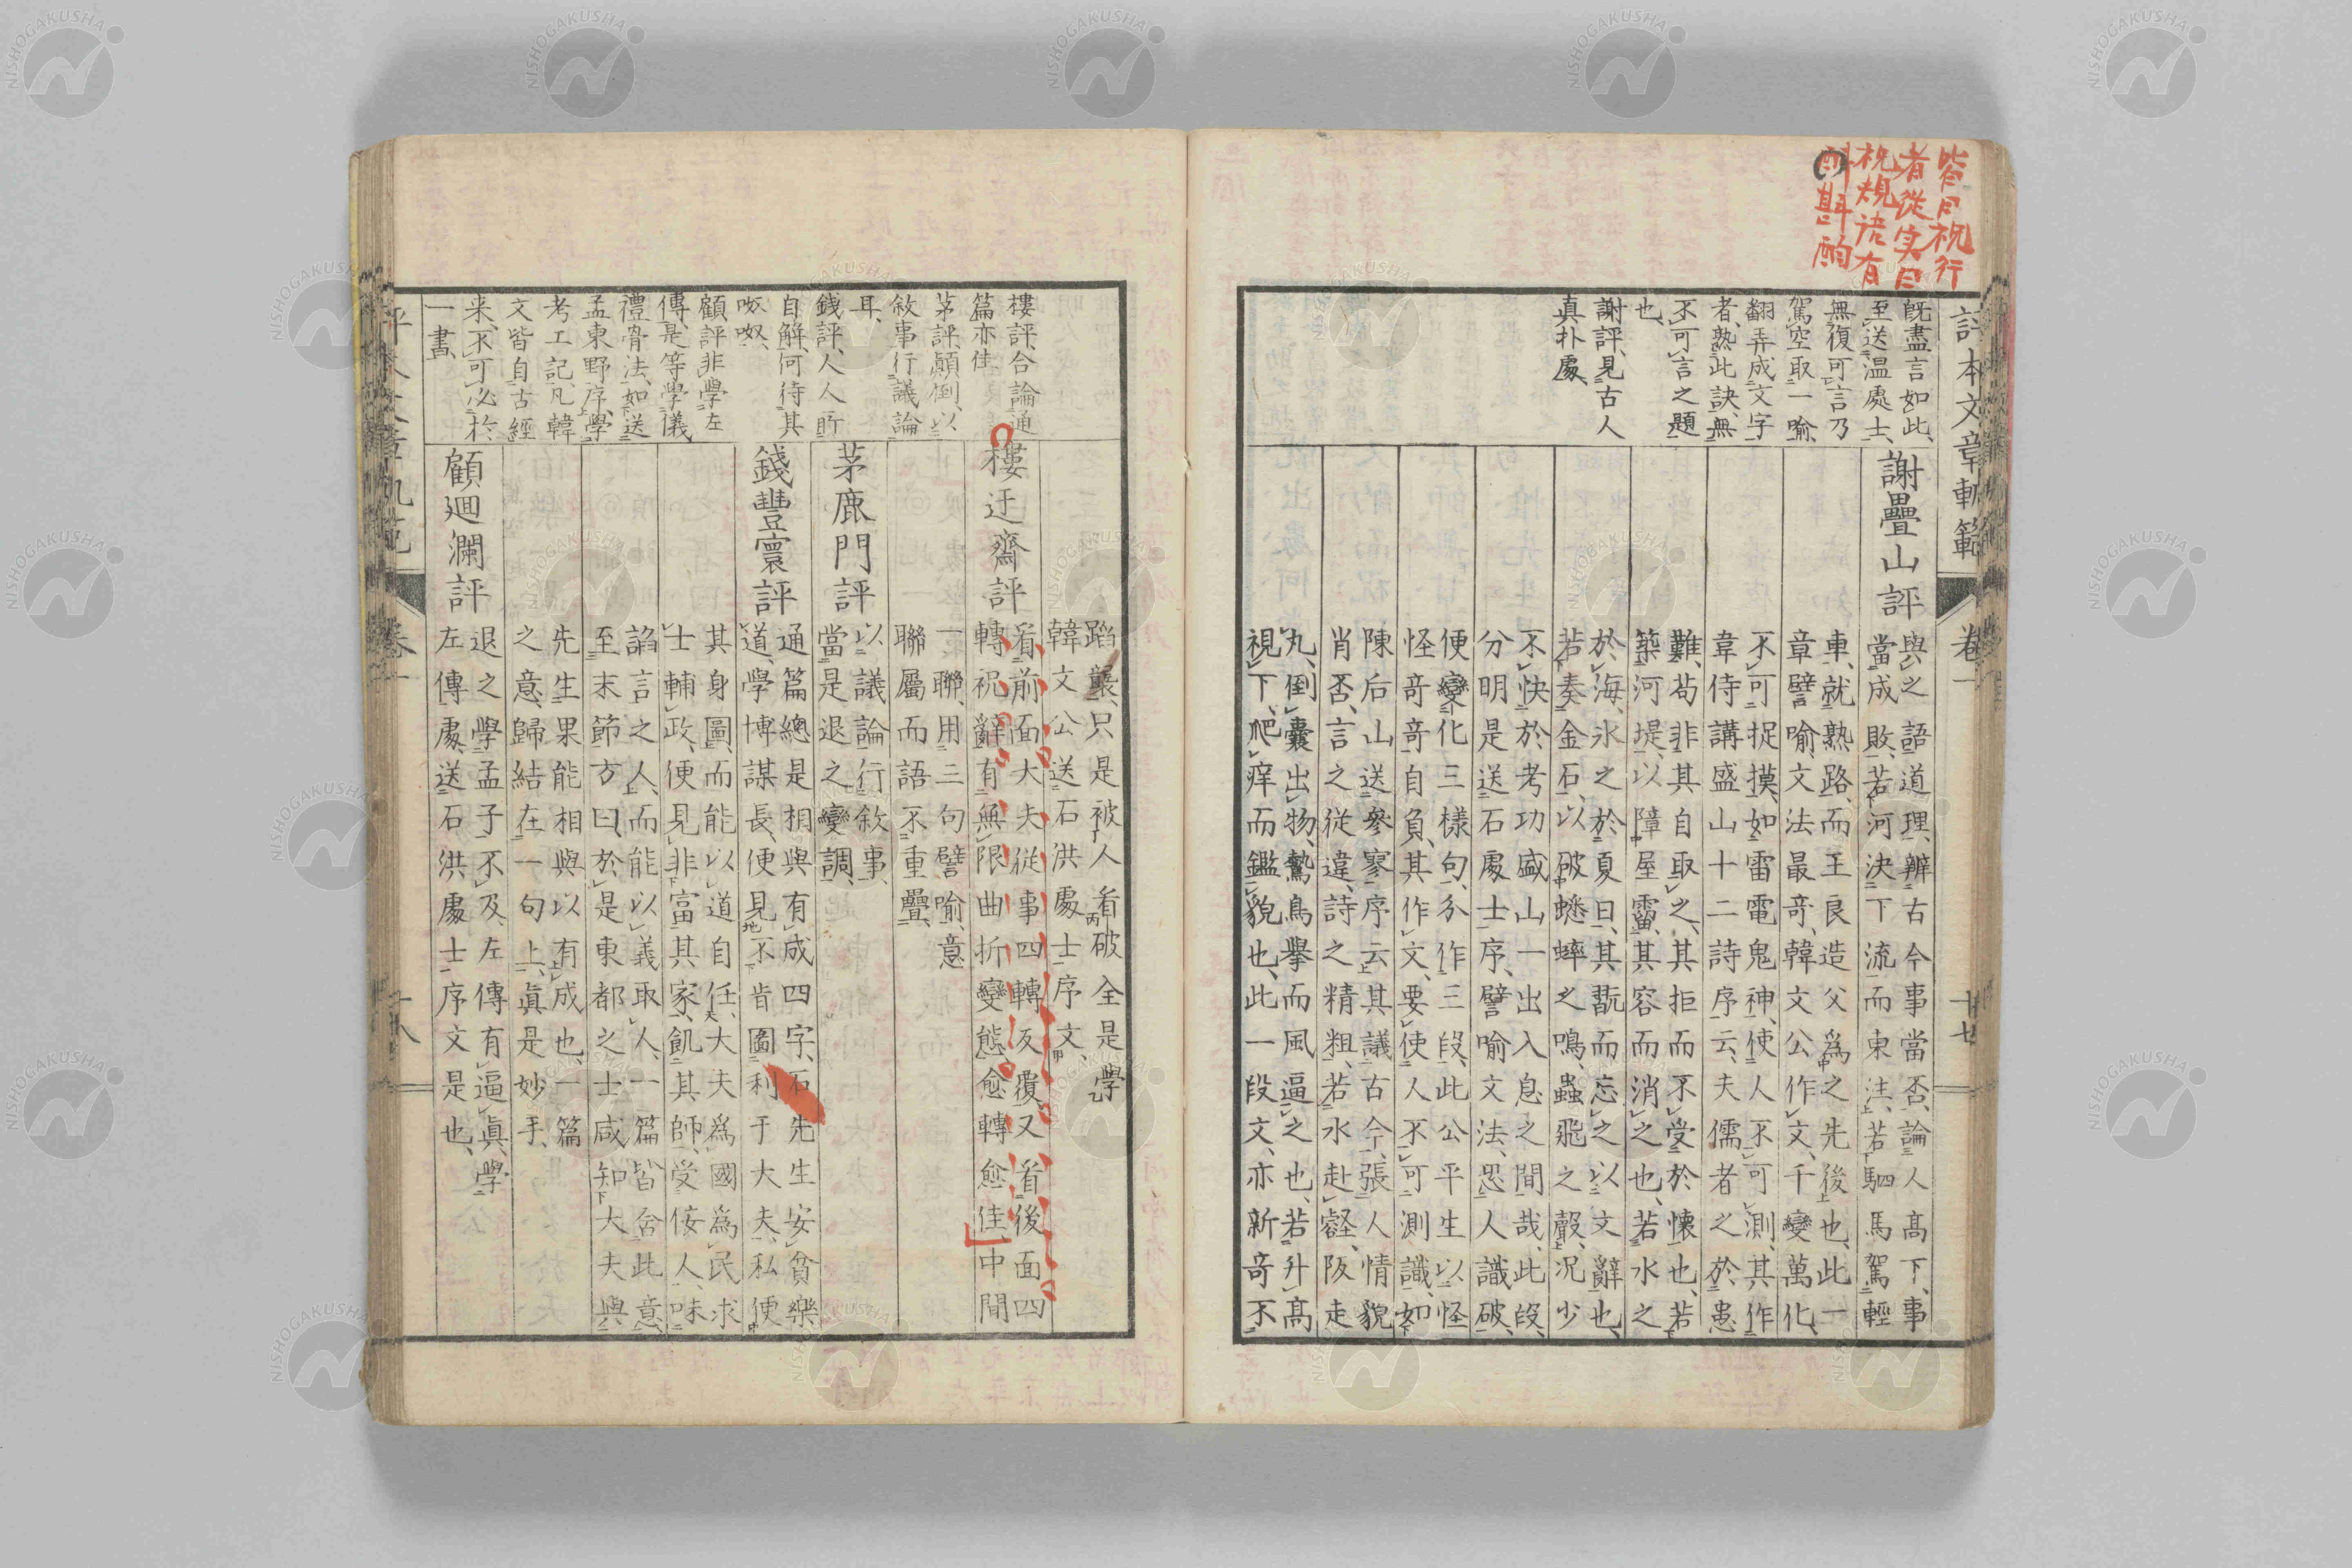 皆是祝行
者從実
祝規語有
斟酌
評本文章軌範
卷一
十七
既盡言如此
至送温處士
無復可言乃
駕空取一喻
翻弄成文字
者熟此訣無
不可言之題
也
謝評見古人
真朴處
謝疊山評
與之語道理辨古今事當否論人高下事
當成敗若河決下流而東注若駟馬駕輕
車就熟路而王良造父爲之先後也此一
章譬喻文法最奇韓文公作文千變萬化
不可捉摸如雷電鬼神使人不可測其作
韋侍講盛山十二詩序云夫儒者之於患
難苟非其自取之其拒而不受於懷也若
築河堤以障屋霤其容而消之也若水之
於海冰之於夏日其翫而忘之以文辭也
若奏金石以破蟋蟀之鳴蟲飛之聲況少
不快於考功盛山一出入息之間哉此段
分明是送石處士序譬喻文法恐人識破
便變化三樣句分作三段此公平生以怪
怪奇奇自負其作文要使人不可測識如
陳后山送參寥序云其議古今張人情貌
肖否言之從違詩之精粗若水赴壑阪走
丸倒囊出物鷙鳥擧而風逼之也若升高
視下爬痒而鑑貌也此一段文亦新奇不
樓評合論通
篇亦佳
茅評顛倒以
敘事行議論
耳
錢評人人所
自解何待其
呶呶
顧評非學左
傳是等學儀
禮骨法如送
孟東野序學
考工記凡韓
文皆自古經
来不可必於
一書
蹈襲只是被人看破全是學
韓文公送石洪處士序文
樓迂齋評
看前面大夫從事四轉反覆又看後面四
轉祝辭有無限曲折變態愈轉愈佳中間
一聯用三句譬喻意
聯屬而語不重疊
茅鹿門評
以議論行敘事
當是退之變調
錢豐寰評
通篇總是相與有成四字石先生安貧樂
道學博謀長便見不肯圖利于大夫私便
其身圖而能以道自任大夫爲國爲民求
士輔政便見非富其家飢其師受佞人味
諂言之人而能以義取人一篇皆含此意
至末節方曰於是東都之士咸知大夫與
先生果能相與以有成也一篇
之意歸結在一句上眞是妙手
顧迴瀾評
退之學孟子不及左傳有逼眞學
左傳處送石洪處士序文是也
卷一